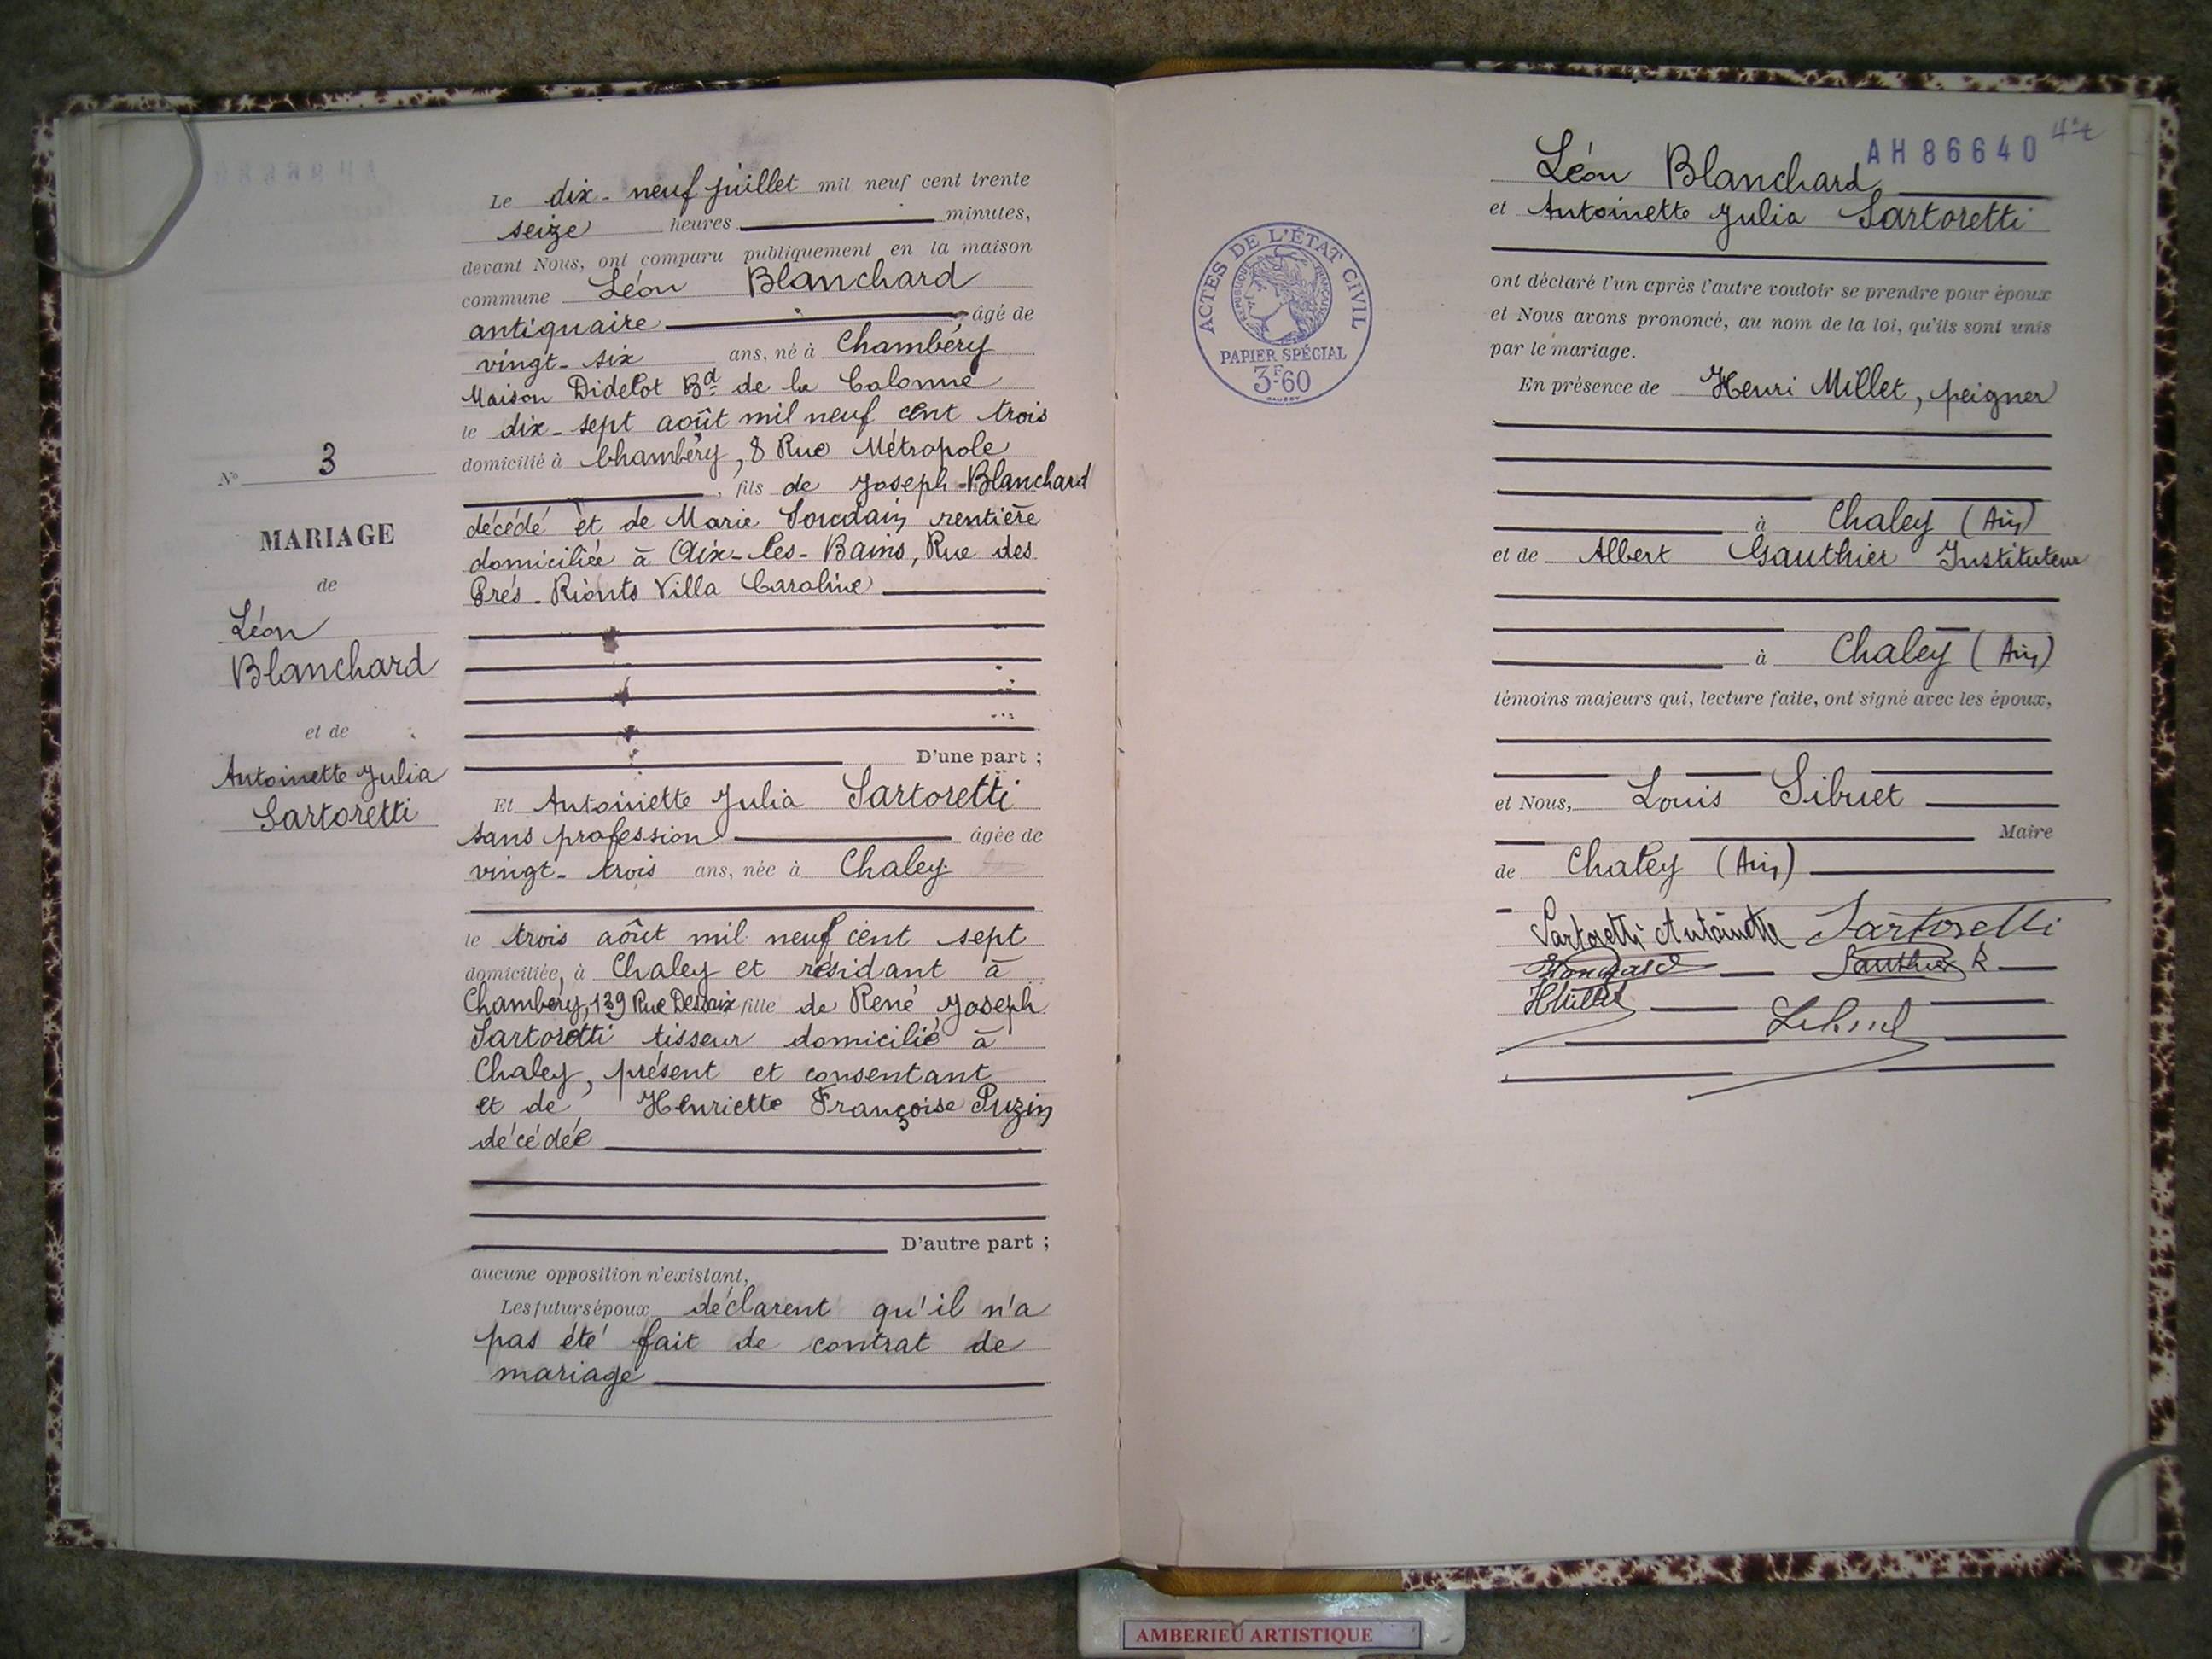 N° 3
MARIAGE
de
Léon
Blanchard
et de
Antoinette Julia
Sartoretti
Le dix-neuf juillet mil neuf cent trente
seize heures minutes,
devant Nous, ont comparu publiquement en la maison
commune Léon Blanchard
antiquaire âgé de
vingt-six ans, né à Chambéry
Maison Didelot Bd de la Colonne
le dix-sept août mil neuf cent trois
domicilié à Chambéry, 8 Rue Métropole
, fils de Joseph Blanchard
décédé et de Marie rentière
domiciliée à Aix-les-Bains, Rue des
Prés-Riants Villa Caroline
D'une part ;
Et Antoinette Julia Sartoretti
sans profession âgée de
vingt-trois ans, née à Chaley
le trois août mil neuf cent sept
domiciliée à Chaley et résidant à
Chambéry, 139 Rue Dessaix fille de René Joseph
Sartoretti tisseur domicilié à
Chaley, présent et consentant
et de Henriette Françoise Puzin
décédée
D'autre part ;
aucune opposition n'existant,
Les futurs époux déclarent qu'il n'a
pas été fait de contrat de
mariage
AH86640
Léon Blanchard
et Antoinette Julia Sartoretti
ACTES DE L'ÉTAT CIVIL
RÉPUBLIQUE FRANÇAISE
PAPIER SPÉCIAL
3F60
ont déclaré l'un après l'autre vouloir se prendre pour époux
et Nous avons prononcé, au nom de la loi, qu'ils sont unis
par le mariage.
En présence de Henri Millet, peigner
à Chaley (Ain)
et de Albert Gauthier Instituteur
à Chaley (Ain)
témoins majeurs qui, lecture faite, ont signé avec les époux,
et Nous, Louis Sibuet
Maire
de Chaley (Ain)
Sartoretti Antoinette Sartoretti
Blanchard Gauthier R
HMillet
AMBERIEU ARTISTIQUE